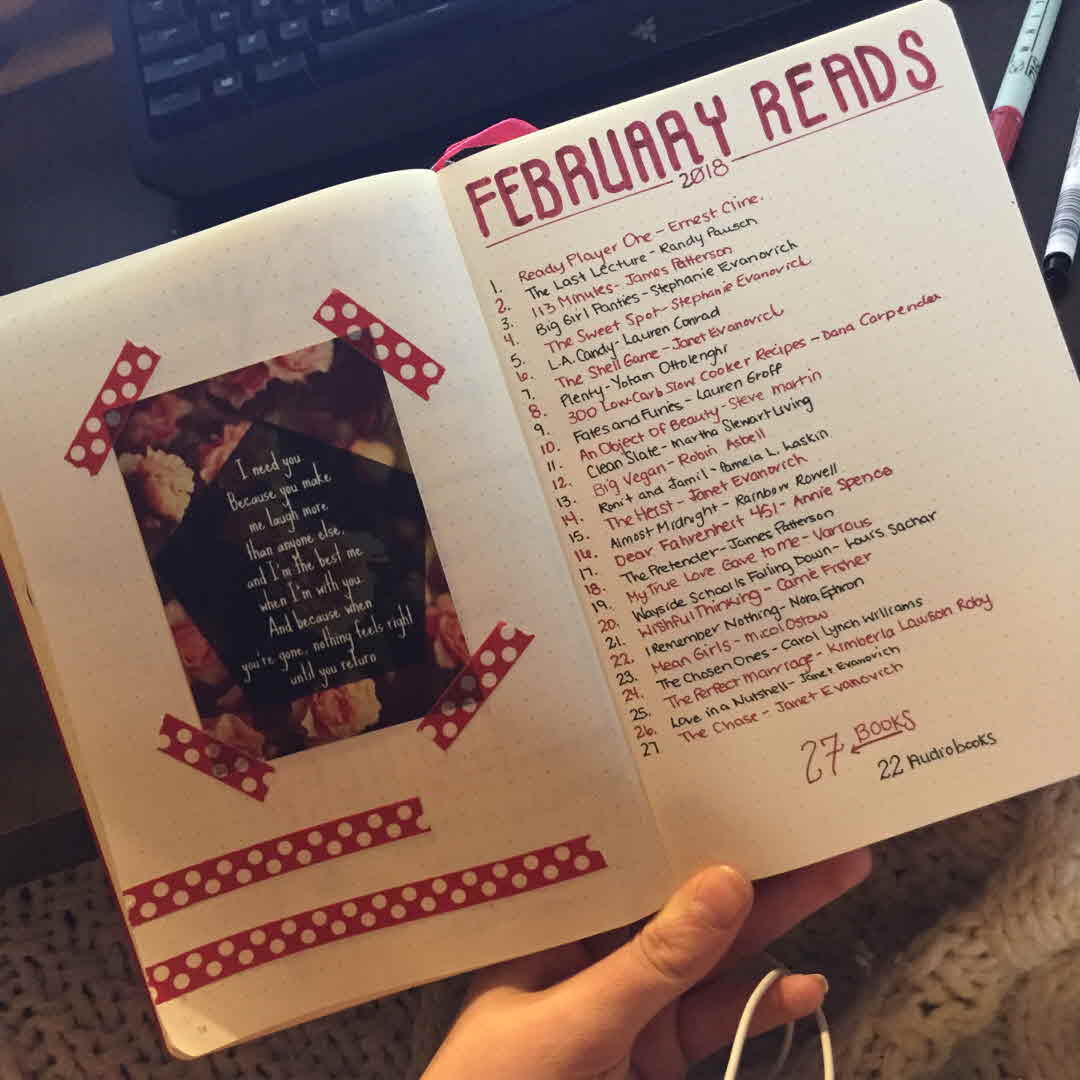 I need you
Because you make
me laugh more
than anyone else,
and I'm the best me
when I'm with you.
And because when
you're gone, nothing feels right
until you return
FEBRUARY READS
2018
1. Ready Player One - Ernest Cline.
2. The Last Lecture - Randy Pausch
3. 113 Minutes - James Patterson
4. Big Girl Panties - Stephanie Evanovich
5. The Sweet Spot - Stephanie Evanovich
6. L.A. Candy - Lauren Conrad
7. The Shell Game - Janet Evanovich
8. Plenty - Yotam Ottolenghi
9. 300 Low-Carb Slow Cooker Recipes - Dana Carpender
10. Fates and Furies - Lauren Groff
11. An Object Of Beauty - Steve Martin
12. Clean Slate - Martha Stewart Living
13. Big Vegan - Robin Asbell
14. Ronit and Jamil - Pamela L. Laskin
15. The Heist - Janet Evanovich
16. Almost Midnight - Rainbow Rowell
17. Dear Fahrenheit 451 - Annie Spence
18. The Pretender - James Patterson
19. My True Love Gave to Me - Various
20. Wayside School Is Falling Down - Louis Sachar
21. Wishful Thinking - Carrie Fisher
22. I Remember Nothing - Nora Ephron
23. Mean Girls - Micol Ostow
24. The Chosen Ones - Carol Lynch Williams
25. The Perfect Marriage - Kimberla Lawson Roby
26. Love in a Nutshell - Janet Evanovich
27 The Chase - Janet Evanovich
27 BOOKS
22 Audiobooks